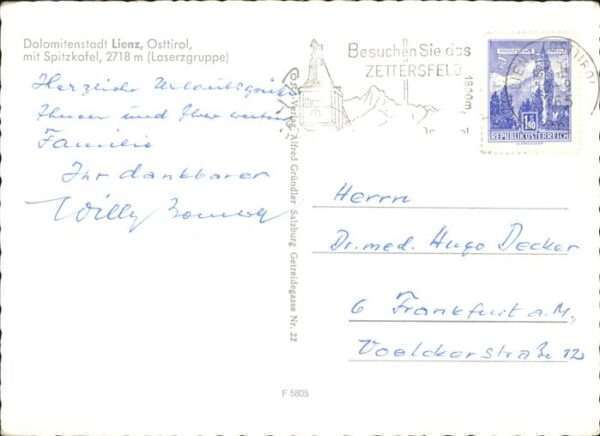 Dolomitenstadt Lienz, Osttirol,
mit Spitzkofel, 2718 m (Laserzgruppe)
Herzliche Urlaubsgrüße
Ihnen und Ihrer werten
Familie
Ihr dankbarer
Willy
Besuchen Sie das
ZETTERSFELD
1820m
LIENZ
OSTTIROL
1.80
REPUBLIK ÖSTERREICH
Verlag Alfred Gründler Salzburg Getreidegasse Nr. 22
Herrn
Dr. med. Hugo Decker
6 Frankfurt a.M.
Voelckerstraße 12
F 5805